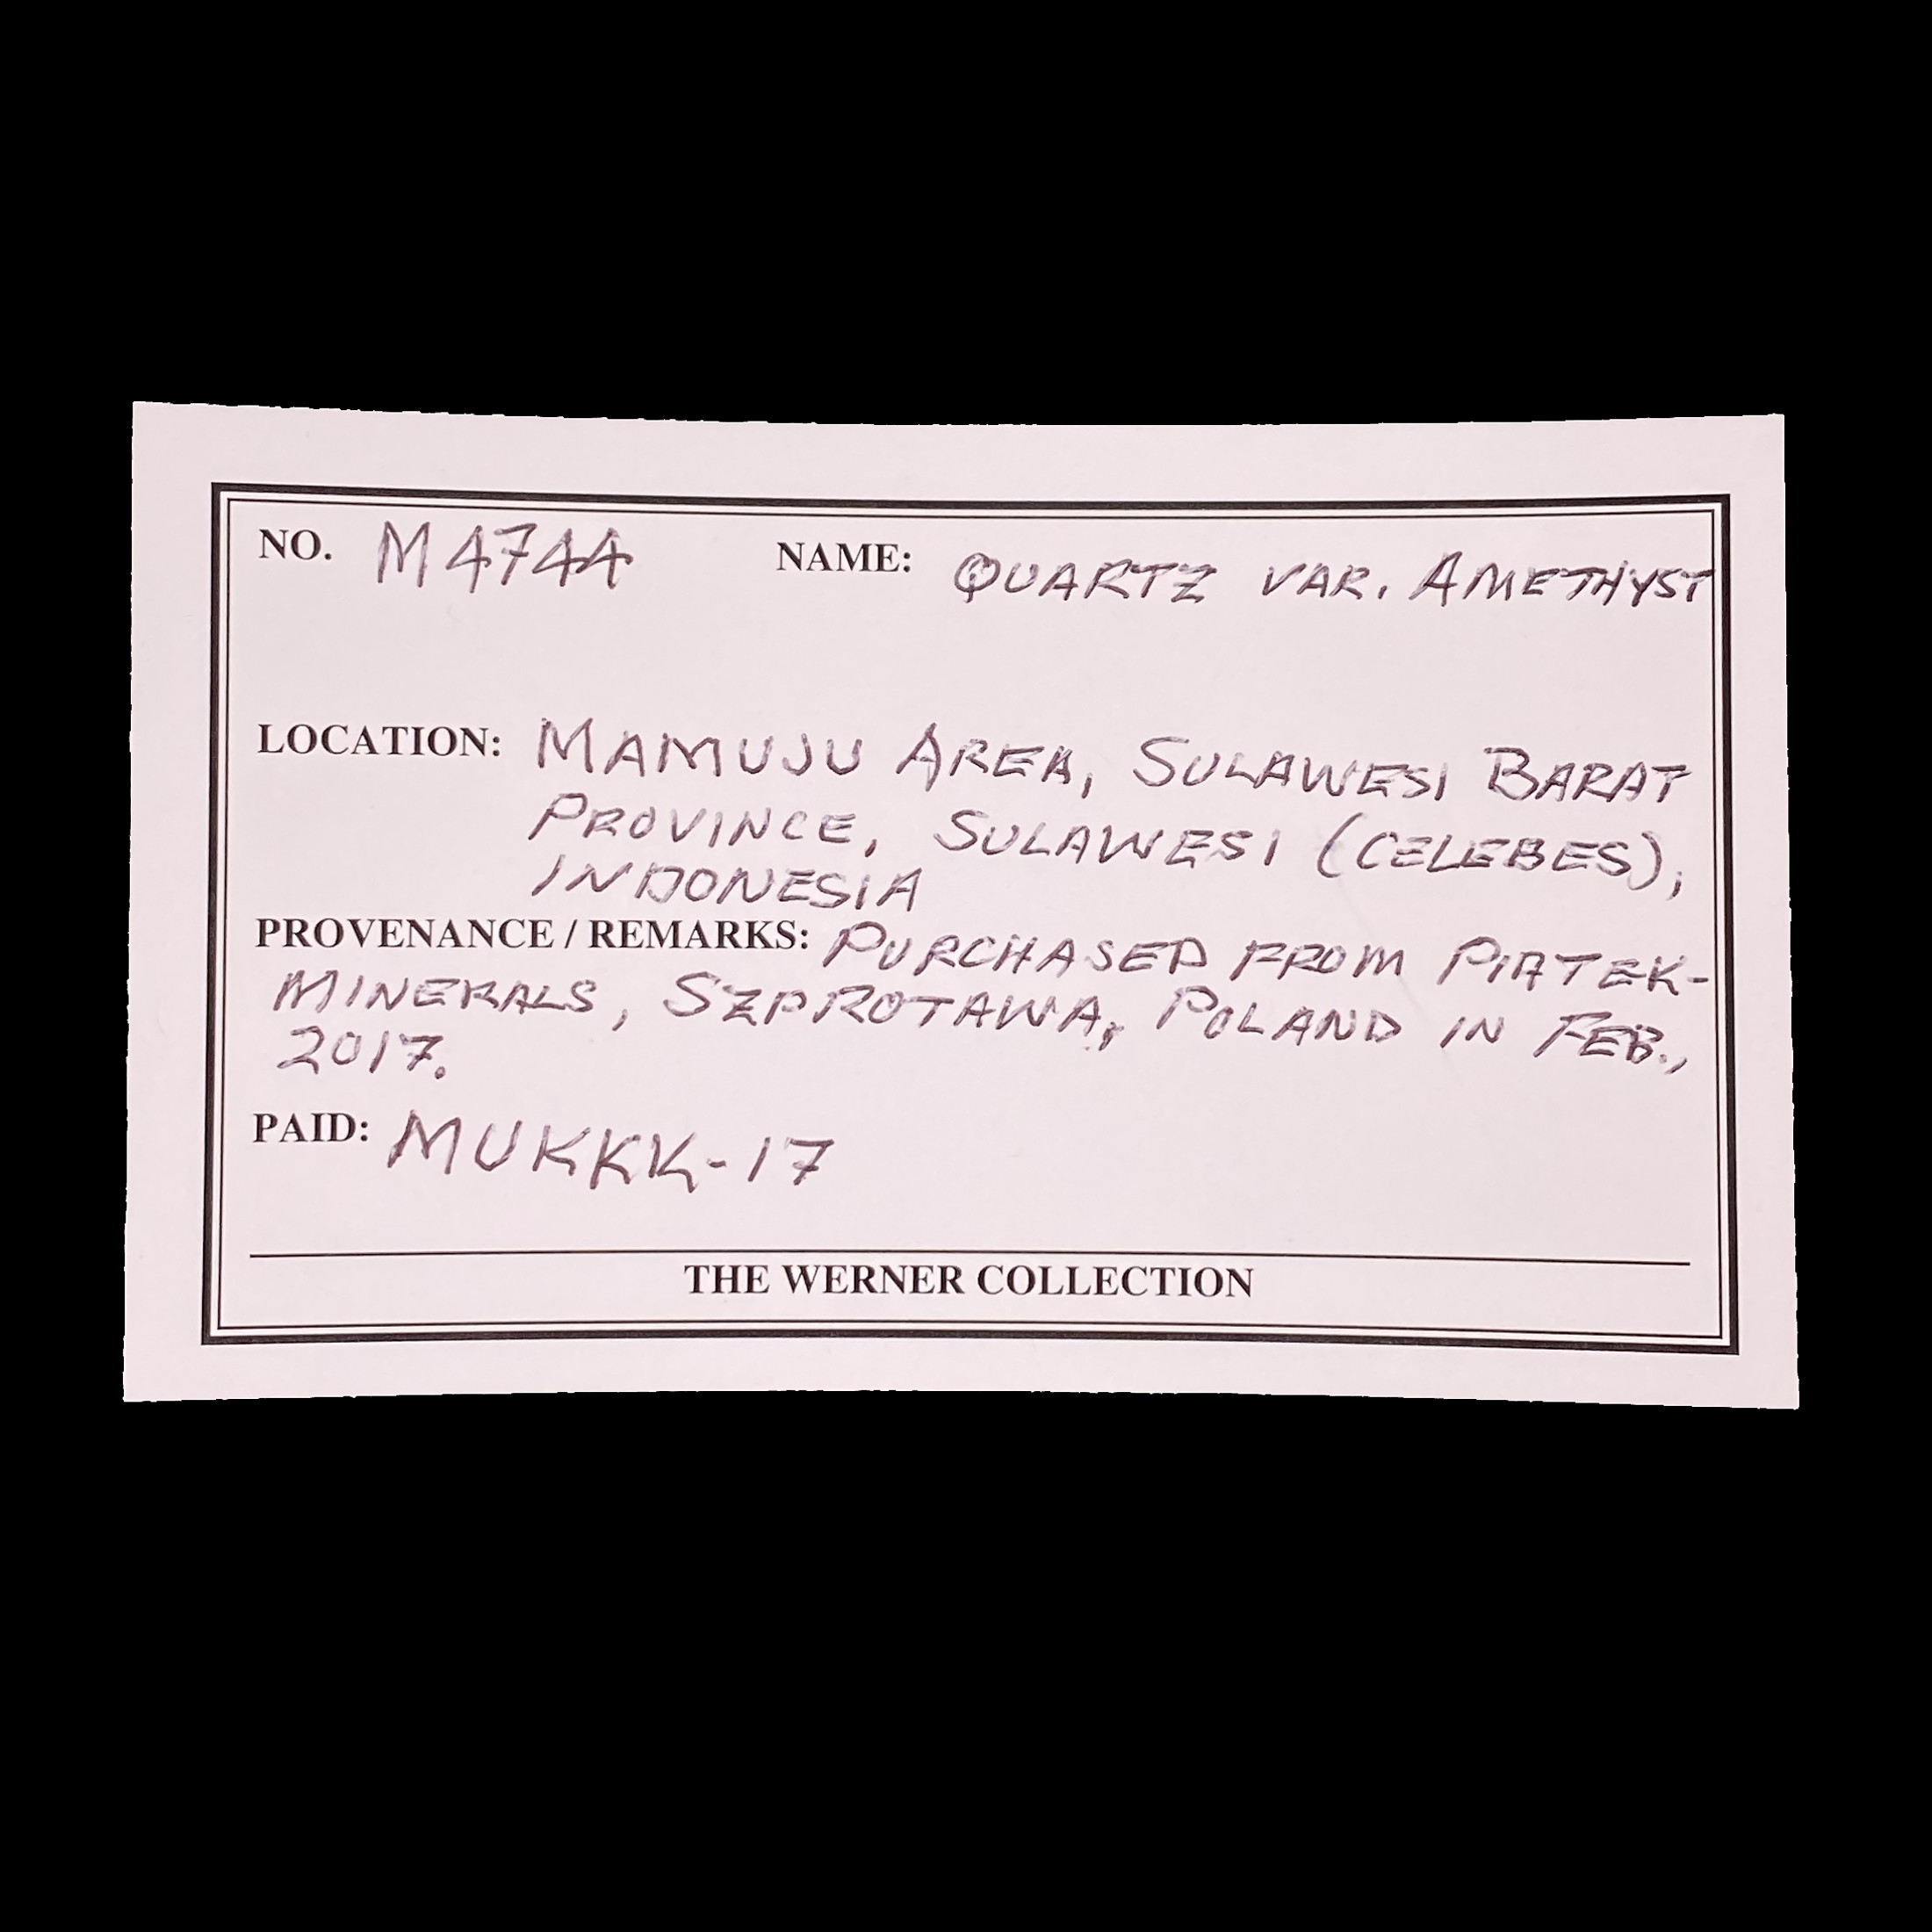 NO. M4744 NAME: QUARTZ VAR. AMETHYST
LOCATION: MAMUJU AREA, SULAWESI BARAT
PROVINCE, SULAWESI (CELEBES),
INDONESIA
PROVENANCE / REMARKS: PURCHASED FROM PIATEK-
MINERALS, SZPROTAWA, POLAND IN FEB.,
2017.
PAID: MUKKK-17
THE WERNER COLLECTION